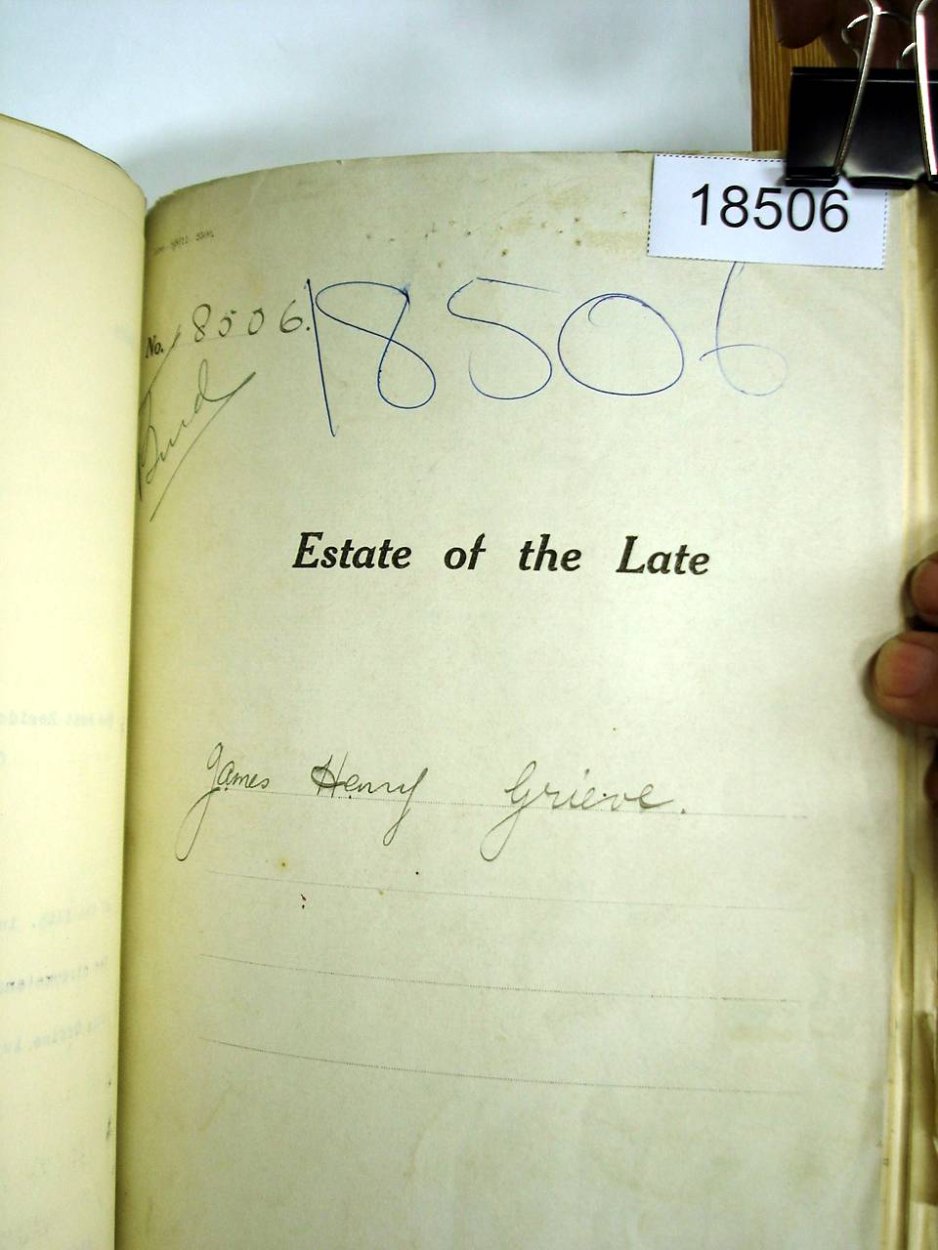 18506
No. 18506.
18506
Estate of the Late
James Henry Grieve.